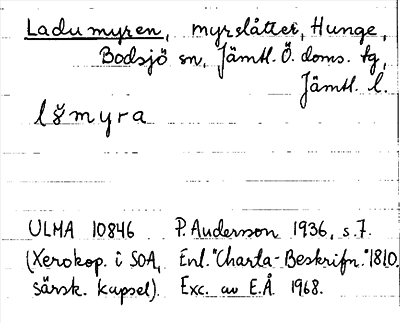 Ladumyren, myrslåtter, Hunge,
Bodsjö sn, Jämtl. Ö. doms. tg,
Jämtl. l.
lšmyra
ULMA 10846 P. Andersson 1936, s. 7.
(Xerokop. i SOA, Enl. "Charta-Beskrifn." 1810.
särsk. kapsel). Exc. av E.Å. 1968.